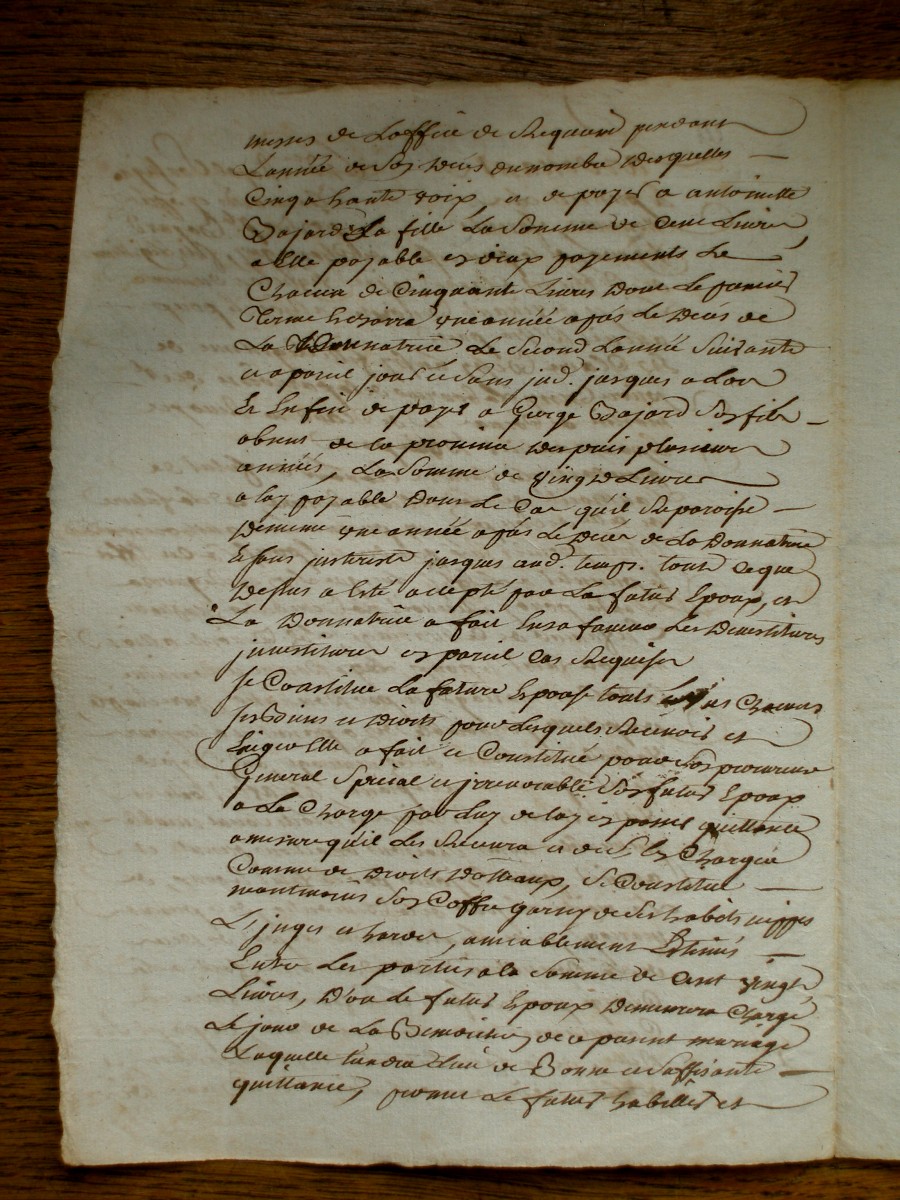 messes de Loffice de Requiem pendant
Lannée de Son Décés du nombre Desquelles
Cinq a haute voix, et de payer a antoinette
Dajard Sa fille La Somme de Cent Livres
a Elle payable en deux payements de
Chacun de Cinquante Livres Dont Le premier
Terme une année apres Le Décés de
La Donnatrice Le Second Lannée Suivante
et a pareil jour et Sans jusques alors
Et Enfin de payer a George Dajard Son fils
absent de la province Despuis plusieurs
années, La Somme de Vingt Livres
a luy payable Dans Le Cas qu'il Reparoisse
De meme une année apres Le Décés de La Donnatrice
Et sans interest jusques aud. temps. tout Ce que
Dessus a Esté accepté par Le futur Epoux, et
La Donnatrice a fait En sa faveur Les Devestitures
jnvestitures en pareil Cas Requises
Se Constitue La future Epouse touts Ses Chacuns
Ses Biens et Droits pour Lesquels Recevoir et
Exiger Elle a fait et Constitué pour Son procureur
General Special et jrrevocable Son futur Epoux
a La Charge par Luy de lay en passer quittance
a mesure qu'il Les Recevra et de S'En Charger
Comme de Droits Dotteaux, Se Constitue
neantmoins Son Coffre garny de Ses habits nippes
Linges et hardes, amiablement Estimés
Entre Les parties a la Somme de Cent vingt
Livres, D'ou Le futur Epoux Demeurera Chargé
Le jour de La Benediction de ce present mariage
Laquelle tiendra Lieu de Bonne et Suffisante
quittance, promet Le futur habiller et